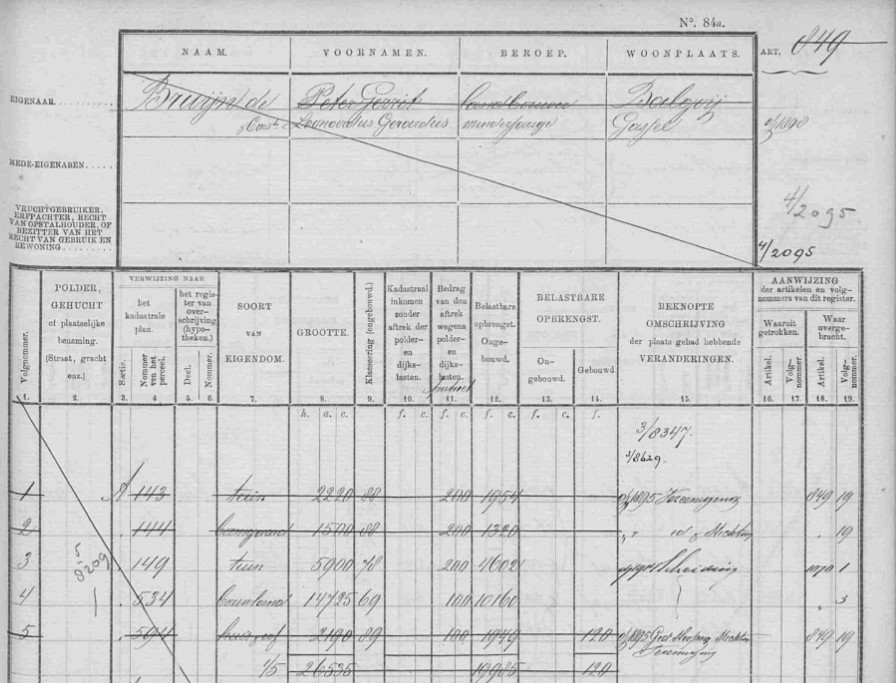 N°. 84a.
NAAM. VOORNAMEN. BEROEP. WOONPLAATS. ART. 849
EIGENAAR. Bruijn de Peter Gerrit Balgoij
Leonardus Gerardus Gassel 1898
MEDE-EIGENAREN.
VRUCHTGEBRUIKER,
ERFPACHTER, RECHT
VAN OPSTALHOUDER, OF
BEZITTER VAN HET
RECHT VAN GEBRUIK EN
BEWONING
4/2095
4/2095
Volgnommer.
POLDER,
GEHUCHT
of plaatselijke
benaming.
(Straat, gracht
enz.)
VERWIJZING NAAR
het
kadastrale
plan.
Sectie.
Nommer
van het
perceel.
het regis-
ter van
over-
schrijving
(hypo-
theken.)
Deel.
Nommer.
SOORT
VAN
EIGENDOM.
GROOTTE.
Klasseering (ongebouwd.)
Kadastraal
inkomen
zonder
aftrek der
polder-
en
dijks-
lasten.
Bedrag
van den
aftrek
wegens
polder-
en
dijks-
lasten.
Belastbare
opbrengst.
Onge-
bouwd.
BELASTBARE
OPBRENGST.
On-
gebouwd.
Gebouwd
BEKNOPTE
OMSCHRIJVING
der plaats gehad hebbende
VERANDERINGEN.
AANWIJZING
der artikelen en volg-
nommers van dit register.
Waaruit
getrokken.
Waar
overge-
bracht.
Artikel.
Volg-
nommer.
Artikel.
Volg-
nommer.
1. 2. 3. 4 5. 6 7. 8. 9. 10. 11. 12. 13. 14. 15. 16. 17. 18. 19.
h. a. c. f. c. f. c. f. c. f. c. f.
3/8347.
1/8629.
1 A 143 tuin 2220 88 200 1954 1895 Vereeniging 849 19
2 " 144 1500 88 200 1320 " id 19
3 149 tuin 5900 78 200 4602 Scheiding 1
8209
4 . 534 bouwland 14725 69 100 10160 " 3
5 . 594 2190 89 100 1949 120 1895 849 19
Vereeniging
1/5 26535 19985 120